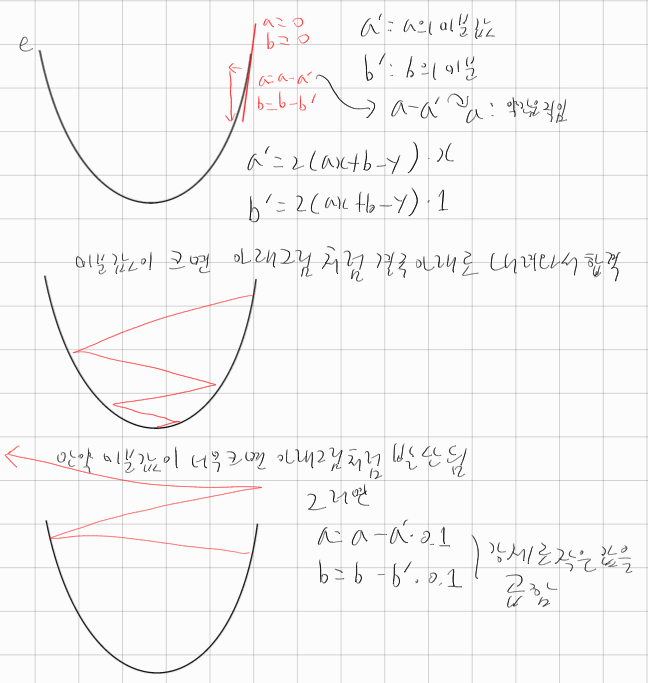 e
a=0
b=0
a=a-a'
b=b-b'
a': a의 미분값
b': b의 미분
a-a' → a: 약간움직임
a'=2(ax+b-y)·x
b'=2(ax+b-y)·1
미분값이 크면 아래그림처럼 결국 아래로 내려와서 합격
만약 미분값이 너무크면 아래그림처럼 발산됨
그러면
a=a-a'·0.1
b=b-b'·0.1
강제로 작은 값을
곱함